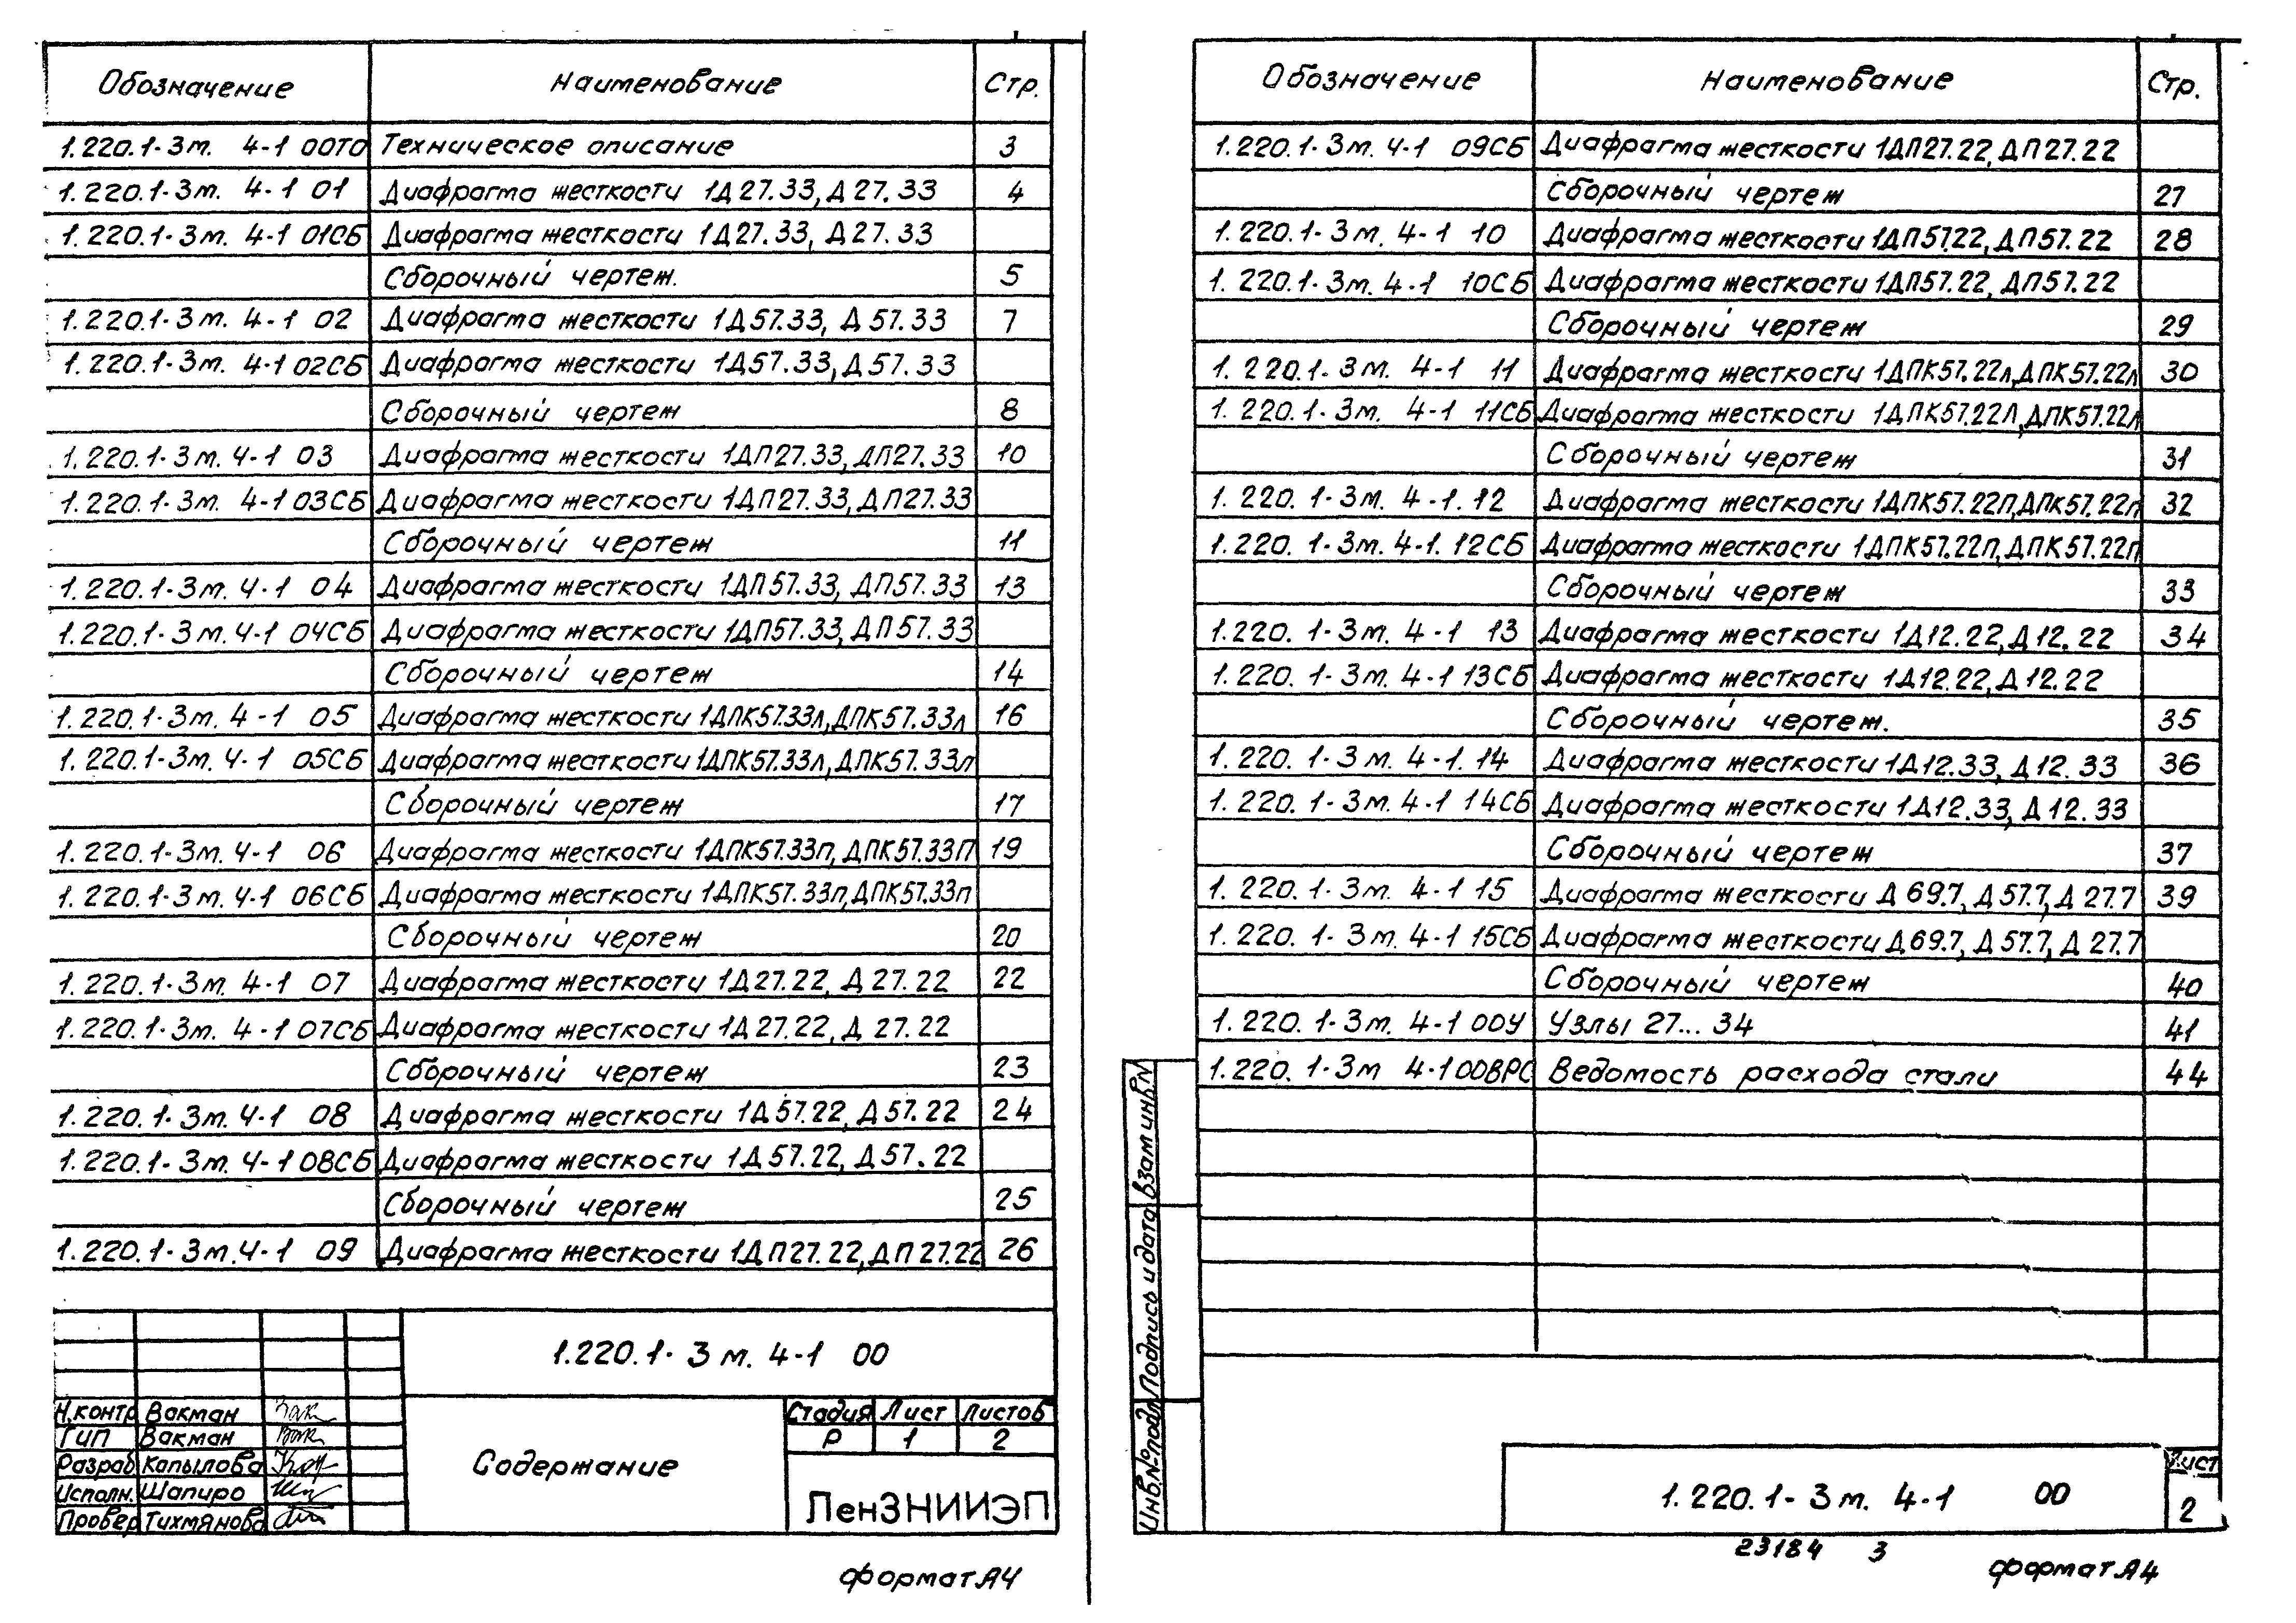 Обозначение Наименование Стр.
1.220.1-3м. 4-1 00ТО Техническое описание 3
1.220.1-3м. 4-1 01 Диафрагма жесткости 1Д27.33, Д27.33 4
1.220.1-3м. 4-1 01СБ Диафрагма жесткости 1Д27.33, Д27.33
Сборочный чертеж. 5
1.220.1-3м. 4-1 02 Диафрагма жесткости 1Д57.33, Д57.33 7
1.220.1-3м. 4-1 02СБ Диафрагма жесткости 1Д57.33, Д57.33
Сборочный чертеж 8
1.220.1-3м. 4-1 03 Диафрагма жесткости 1ДП27.33, ДП27.33 10
1.220.1-3м. 4-1 03СБ Диафрагма жесткости 1ДП27.33, ДП27.33
Сборочный чертеж 11
1.220.1-3м. 4-1 04 Диафрагма жесткости 1ДП57.33, ДП57.33 13
1.220.1-3м. 4-1 04СБ Диафрагма жесткости 1ДП57.33, ДП57.33
Сборочный чертеж 14
1.220.1-3м. 4-1 05 Диафрагма жесткости 1ДПК57.33л, ДПК57.33л 16
1.220.1-3м. 4-1 05СБ Диафрагма жесткости 1ДПК57.33л, ДПК57.33л
Сборочный чертеж 17
1.220.1-3м. 4-1 06 Диафрагма жесткости 1ДПК57.33п, ДПК57.33П 19
1.220.1-3м. 4-1 06СБ Диафрагма жесткости 1ДПК57.33п, ДПК57.33п
Сборочный чертеж 20
1.220.1-3м. 4-1 07 Диафрагма жесткости 1Д27.22, Д27.22 22
1.220.1-3м. 4-1 07СБ Диафрагма жесткости 1Д27.22, Д 27.22
Сборочный чертеж 23
1.220.1-3м. 4-1 08 Диафрагма жесткости 1Д57.22, Д57.22 24
1.220.1-3м. 4-1 08СБ Диафрагма жесткости 1Д57.22, Д57.22
Сборочный чертеж 25
1.220.1-3м. 4-1 09 Диафрагма жесткости 1ДП27.22, ДП27.22 26
1.220.1-3м. 4-1 00
Н.контр Вакман
ГИП Вакман
Разраб Капылова
Исполн. Шапиро
Провер Тихмянова
Содержание
Стадия Лист Листов
Р 1 2
ЛенЗНИИЭП
формат А4
Обозначение Наименование Стр.
1.220.1-3м. 4-1 09СБ Диафрагма жесткости 1ДП27.22, ДП27.22
Сборочный чертеж 27
1.220.1-3м. 4-1 10 Диафрагма жесткости 1ДП57.22, ДП57.22 28
1.220.1-3м. 4-1 10СБ Диафрагма жесткости 1ДП57.22, ДП57.22
Сборочный чертеж 29
1.220.1-3м. 4-1 11 Диафрагма жесткости 1ДПК57.22л, ДПК57.22л 30
1.220.1-3м. 4-1 11СБ Диафрагма жесткости 1ДПК57.22Л, ДПК57.22л
Сборочный чертеж 31
1.220.1-3м. 4-1. 12 Диафрагма жесткости 1ДПК57.22П, ДПК57.22п 32
1.220.1-3м. 4-1. 12СБ Диафрагма жесткости 1ДПК57.22п, ДПК57.22п
Сборочный чертеж 33
1.220.1-3м. 4-1 13 Диафрагма жесткости 1Д12.22, Д12.22 34
1.220.1-3м. 4-1 13СБ Диафрагма жесткости 1Д12.22, Д12.22
Сборочный чертеж. 35
1.220.1-3м. 4-1. 14 Диафрагма жесткости 1Д12.33, Д12.33 36
1.220.1-3м. 4-1 14СБ Диафрагма жесткости 1Д12.33, Д12.33
Сборочный чертеж 37
1.220.1-3м. 4-1 15 Диафрагма жесткости Д69.7, Д57.7, Д27.7 39
1.220.1-3м. 4-1 15СБ Диафрагма жесткости Д69.7, Д57.7, Д27.7
Сборочный чертеж 40
1.220.1-3м. 4-1 00У Узлы 27...34 41
1.220.1-3м 4-1 00ВРС Ведомость расхода стали 44
Взам инв.N
Подпись и дата
Инв.№подл
1.220.1-3м. 4-1 00
Лист
2
23184 3
формат А4